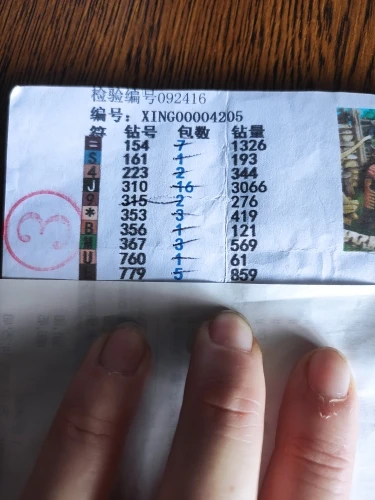 检验编号092416
编号：XING00004205
符 钻号 包数 钻量
= 154 7 1326
S 161 1 193
4 223 2 344
J 310 16 3066
9 315 2 276
* 353 3 419
B 356 1 121
367 3 569
U 760 1 61
779 5 859
3